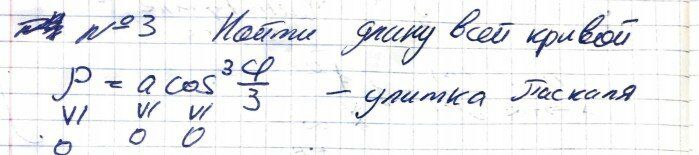 №3 Найти длину всей кривой
ρ = a cos³ φ/3 – улитка Паскаля
≥ ≥ ≥
0 0 0